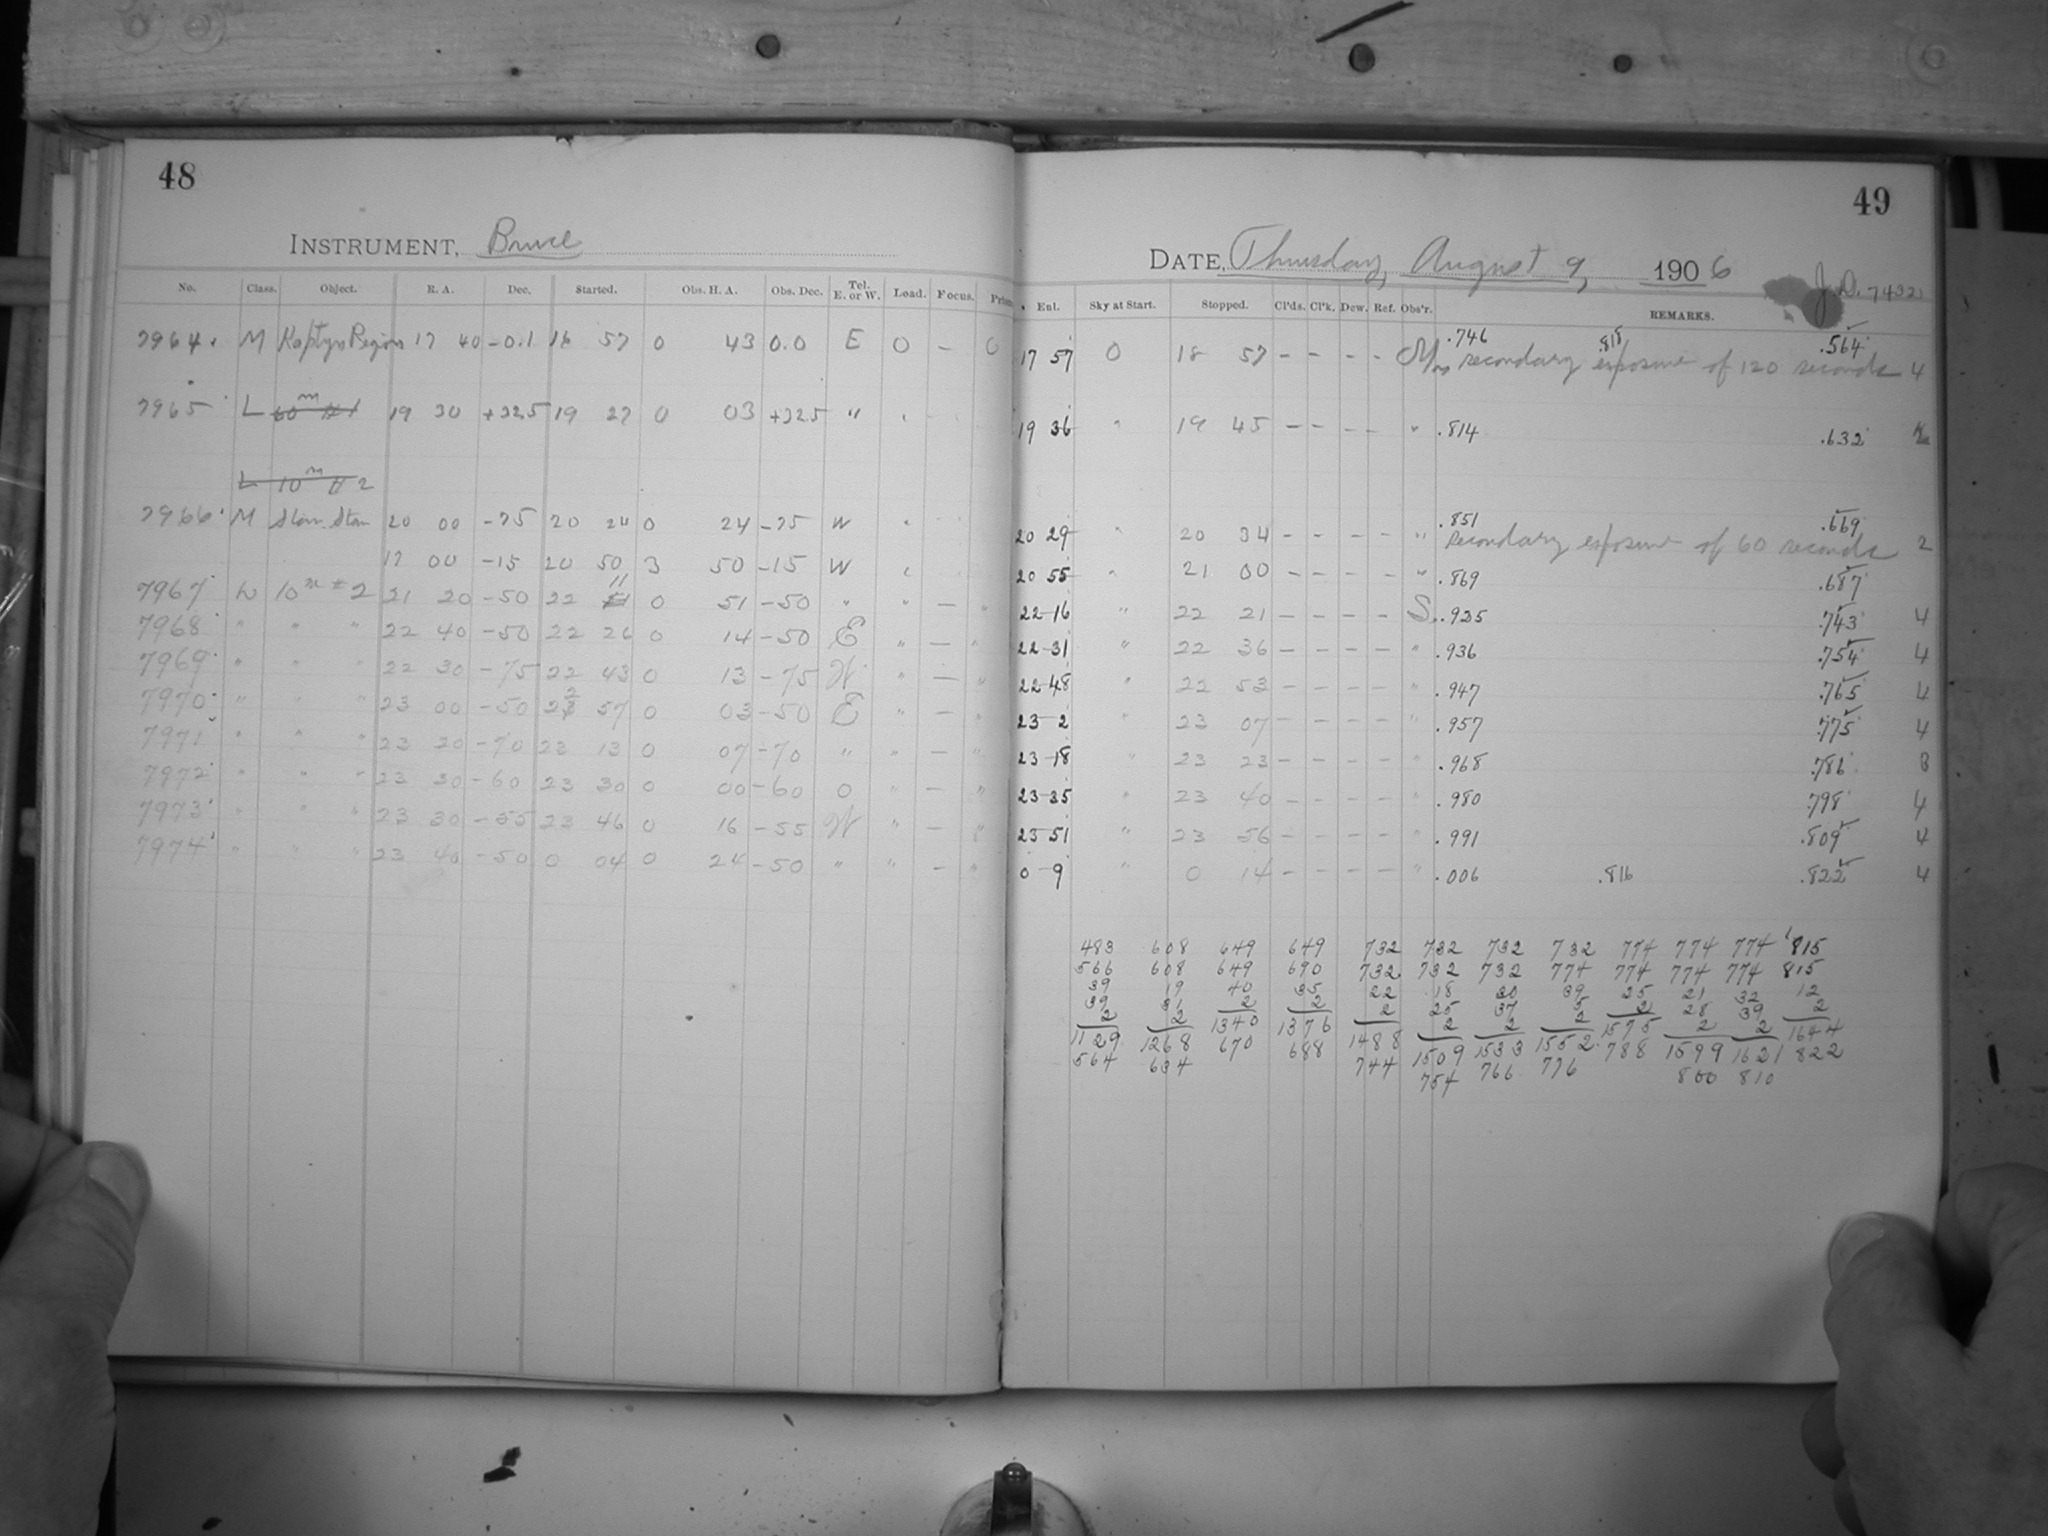 48
INSTRUMENT, Bruce
No. Class. Object. R. A. Dec. Started. Obs. H. A. Obs. Dec. Tel. E. or W. Load. Focus.
7964. M Region 17 40 -0.1 16 57 0 43 0.0 E 0 - 0
7965 L 60 m #1 19 30 +32.5 19 27 0 03 +32.5 "
L 10 m #2
7966 M 20 00 -75 20 24 0 24 -75 W
17 00 -15 20 50 3 50 -15 W
7967 L 10 m #2 21 20 -50 22 11 0 51 -50 " " - "
7968 " " " 22 40 -50 22 26 0 14 -50 E " - "
7969 " " " 22 30 -75 22 43 0 13 -75 W " - "
7970 " " " 23 00 -50 22 57 0 03 -50 E " - "
7971 " " " 23 20 -70 23 13 0 07 -70 " " - "
7972 " " " 23 30 -60 23 30 0 00 -60 0 " - "
7973 " " " 23 30 -55 23 46 0 16 -55 W " - "
7974 " " " 23 40 -50 0 04 0 24 -50 " " - "
49
DATE, Thursday, August 9, 1906 J.D. 7432
Enl. Sky at Start. Stopped. Cl'ds. Cl'k. Dew. Ref. Obs'r. REMARKS.
.746 .818 .564
17 57 0 18 57 - - - - secondary exposure of 120 seconds 4
19 36 " 19 45 - - - - " .814 .632
.851 .669
20 29 " 20 34 - - - - " Secondary exposure of 60 seconds 2
20 55 " 21 00 - - - - " .869 .687
22-16 " 22 21 - - - - S. .925 .743 4
22-31 " 22 36 - - - - " .936 .754 4
22-48 " 22 53 - - - - " .947 .765 4
23-2 " 23 07 - - - - " .957 .775 4
23-18 " 23 23 - - - - " .968 .786 3
23-35 " 23 40 - - - - " .980 .798 4
23-51 " 23 56 - - - - " .991 .809 4
0-9 " 0 14 - - - - " .006 .816 .822 4
483 608 649 649 732 732 732 732 774 774 774 815
566 608 649 690 732 732 732 774 774 774 774 815
39 19 40 35 22 18 30 39 25 21 32 12
39 31 2 2 2 25 37 5 2 28 39 2
2 2 1340 1376 1488 2 2 2 1575 2 2 1644
1129 1268 670 688 744 1509 1533 1552 788 1599 1621 822
564 634 754 766 776 800 810